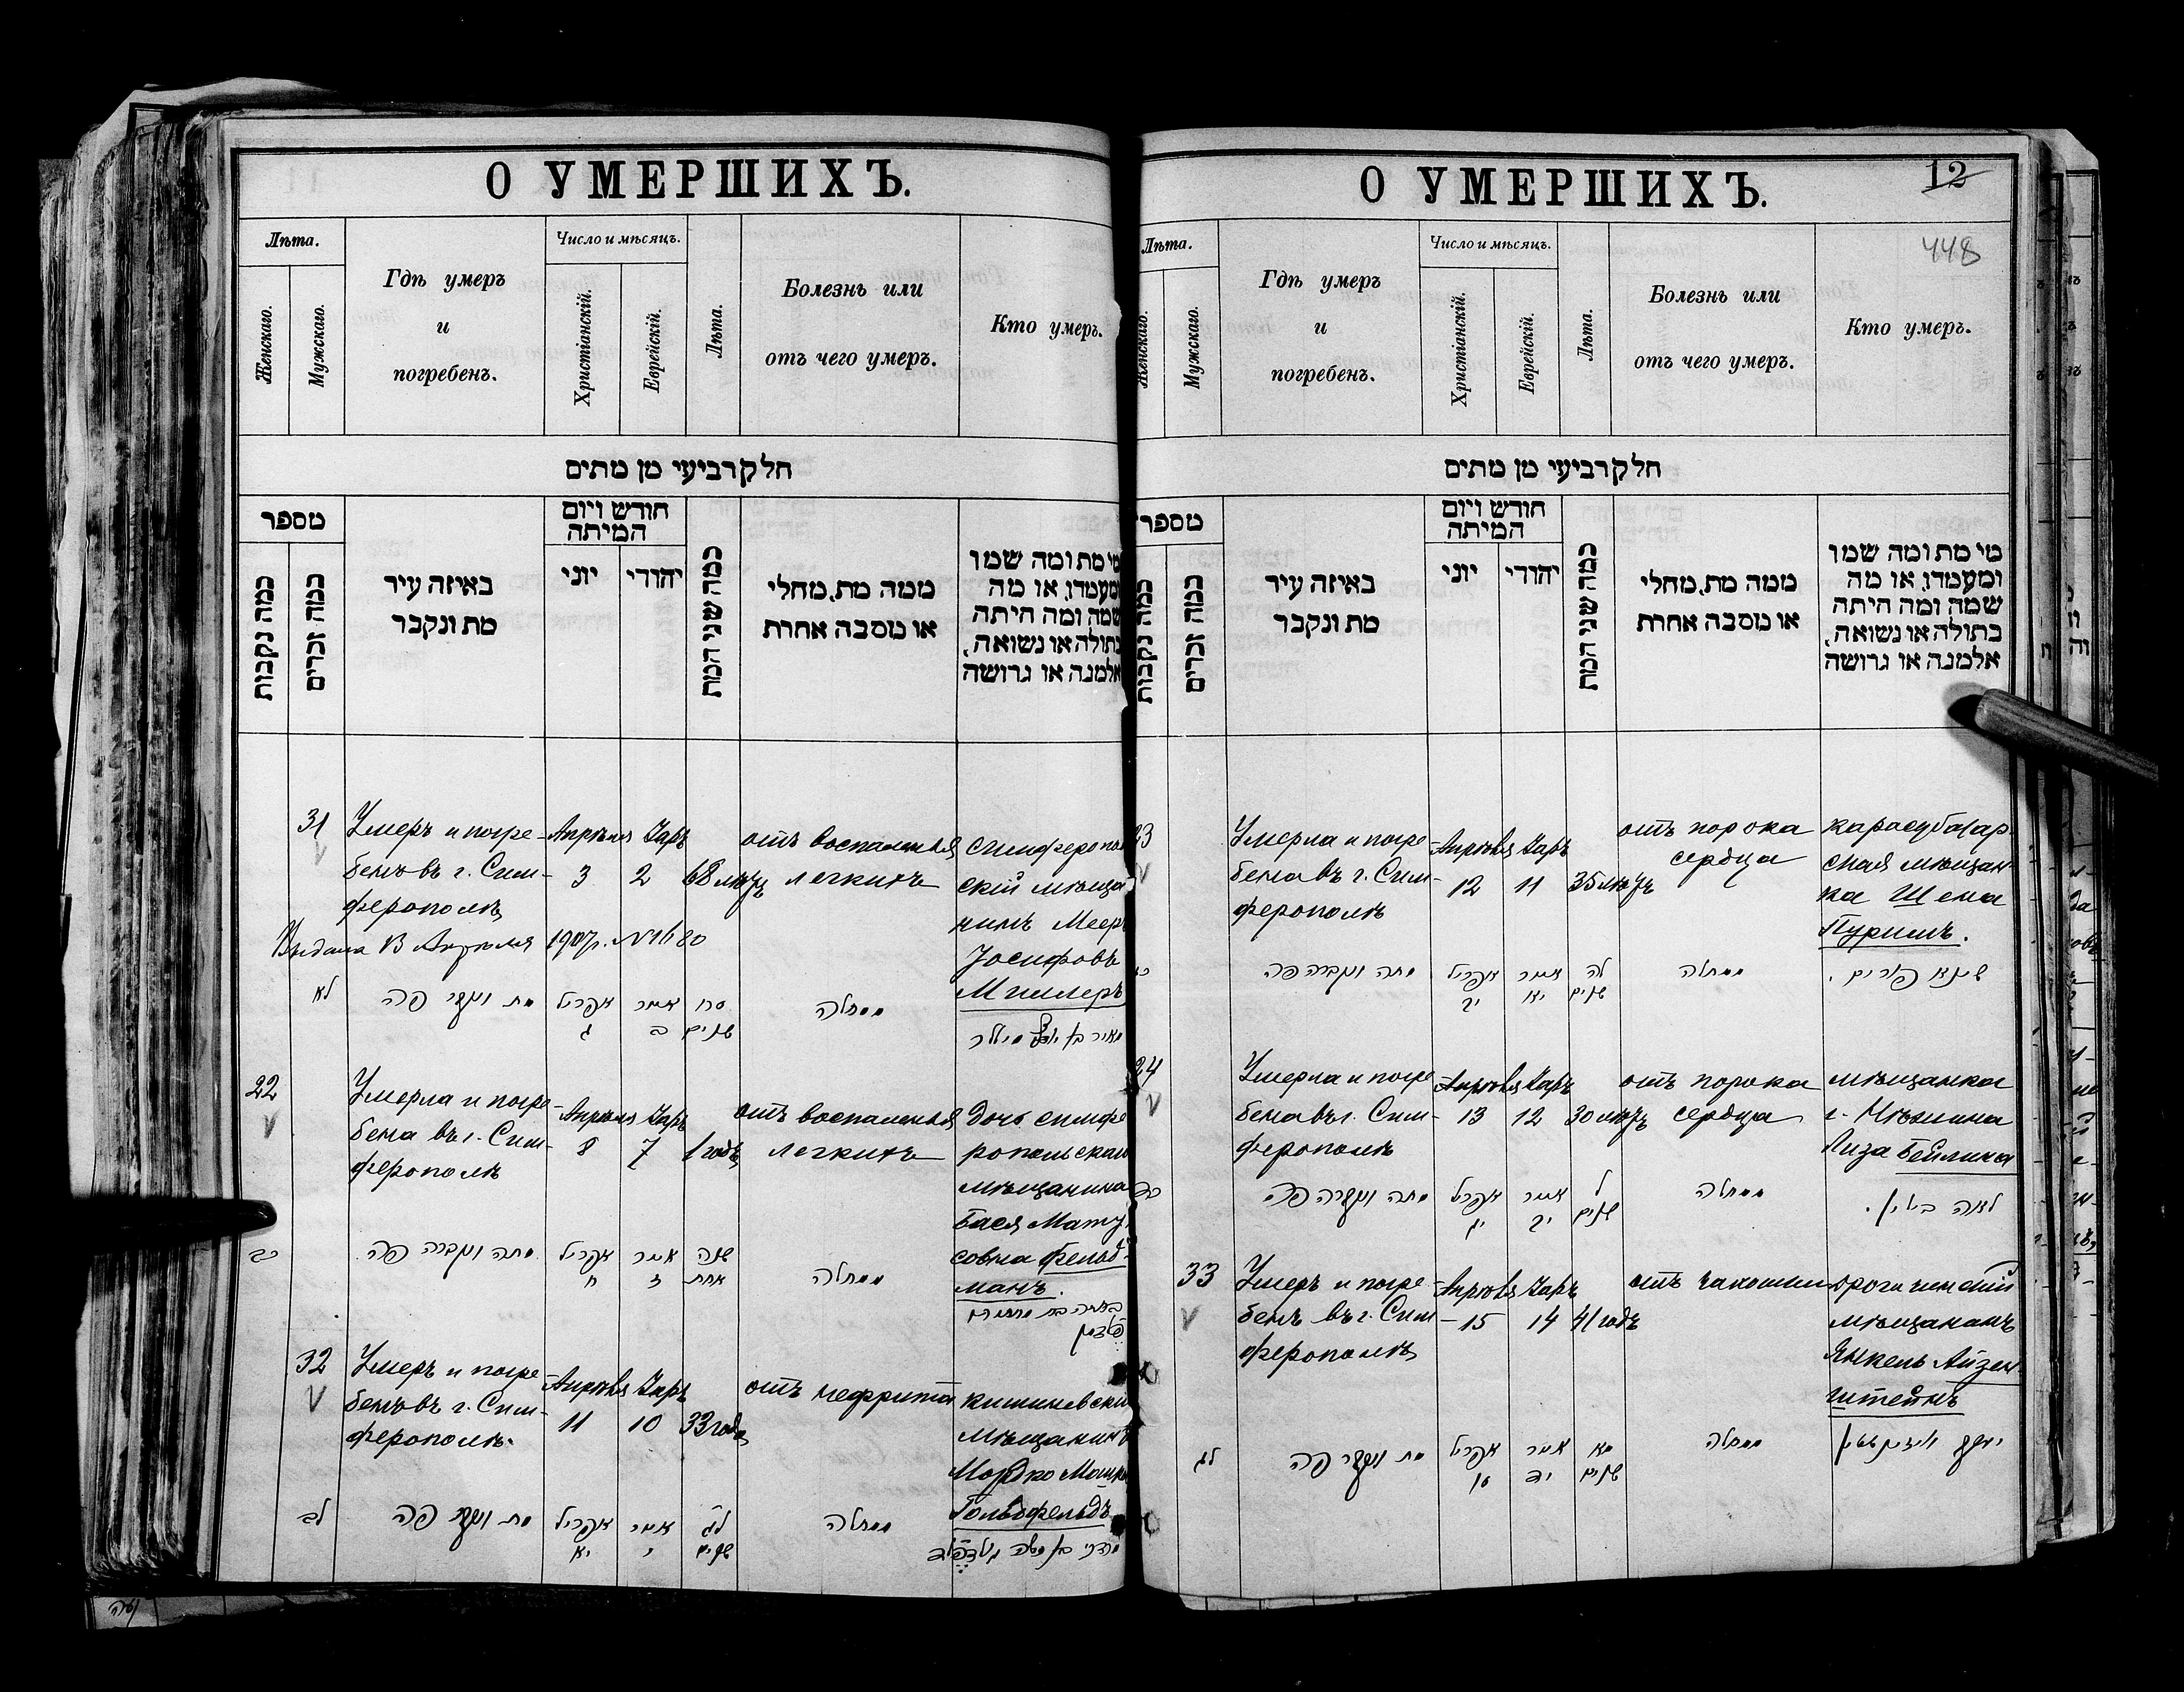 О УМЕРШИХЪ.
Лѣта.
Женскаго.
Мужскаго.
Гдѣ умеръ
и
погребенъ.
Число и мѣсяцъ.
Христіанскій.
Еврейскій.
Лѣта.
Болезнь или
отъ чего умеръ.
Кто умеръ.
חלק רביעי מן מתים
מספר
כמה נקבות
כמה זכרים
באיזה עיר
מת ונקבר
חודש ויום
המיתה
יהודי
יוני
כמה שני המת
ממה מת, מחלי
או מסבה אחרת
מי מת ומה שמו
ומעמדו, או מה
שמה ומה היתה
בתולה או נשואה,
אלמנה או גרושה
31
Умеръ и погре-
бенъ въ г. Сим-
ферополѣ
Апрѣля
3
Іаръ
2
68 лѣтъ
отъ воспаленія
легкихъ
симферополь
скій мѣща
нинъ Меер
Іосифовъ
Миллеръ
Выдана 13 Апрѣля 1907 г. № 1680
לא
מת ונקבר פה
אפריל
ג
אייר
ב
סח
שנים
ממחלה
מאיר בן יוסף מיללר
22
Умерла и погре-
бена въ г. Сим-
ферополѣ
Апрѣля
8
Іаръ
7
1 годъ
отъ воспаленія
легкихъ
дочь симфе
ропольскаго
мѣщанина
Бася Мату
совна Фельд-
манъ.
כב
מתה ונקברה פה
אפריל
ח
אייר
ז
שנה
אחת
ממחלה
פֿלדמן
32
Умеръ и погре-
бенъ въ г. Сим-
ферополѣ.
Апрѣля
11
Іаръ
10
33 года
отъ нефрита
кишиневскі
мѣщанинъ
Мордко Мошко
Гольдфельдъ
לב
מת ונקבר פה
אפריל
יא
אייר
י
לג
שנים
ממחלה
מרדכי בן משה גאלדפֿעלד
О УМЕРШИХЪ.
12
448
Лѣта.
Женскаго.
Мужскаго.
Гдѣ умеръ
и
погребенъ.
Число и мѣсяцъ.
Христіанскій.
Еврейскій.
Лѣта.
Болезнь или
отъ чего умеръ.
Кто умеръ.
חלק רביעי מן מתים
מספר
כמה נקבות
כמה זכרים
באיזה עיר
מת ונקבר
חודש ויום
המיתה
יהודי
יוני
כמה שני המת
ממה מת, מחלי
או מסבה אחרת
מי מת ומה שמו
ומעמדו, או מה
שמה ומה היתה
בתולה או נשואה,
אלמנה או גרושה
23
Умерла и погре
бена въ г. Сим-
ферополѣ
Апрѣля
12
Іаръ
11
35 лѣтъ
отъ порока
сердца
карасубазар-
ская мѣщан-
ка Шена
Пуримъ.
מתה ונקברה פה
אפריל
יב
אייר
יא
לה
שנים
ממחלה
שיינא פורים.
24
Умерла и погре
бена въ г. Сим-
ферополѣ
Апрѣля
13
Іаръ
12
30 лѣтъ
отъ порока
сердца
мѣщанка
г. Нѣжина
Лиза Бейлина
כד
מתה ונקברה פה
אפריל
יג
אייר
יב
ל
שנים
ממחלה
לאה ביילין.
33
Умеръ и погре-
бенъ въ г. Сим-
ферополѣ
Апрѣля
15
Іаръ
14
41 годъ
отъ чахотки
мѣщанинъ
Янкель Айзен-
штейнъ
לג
מת ונקבר פה
אפריל
טו
אייר
יד
מא
שנים
ממחלה
יעקב אייזינשטיין